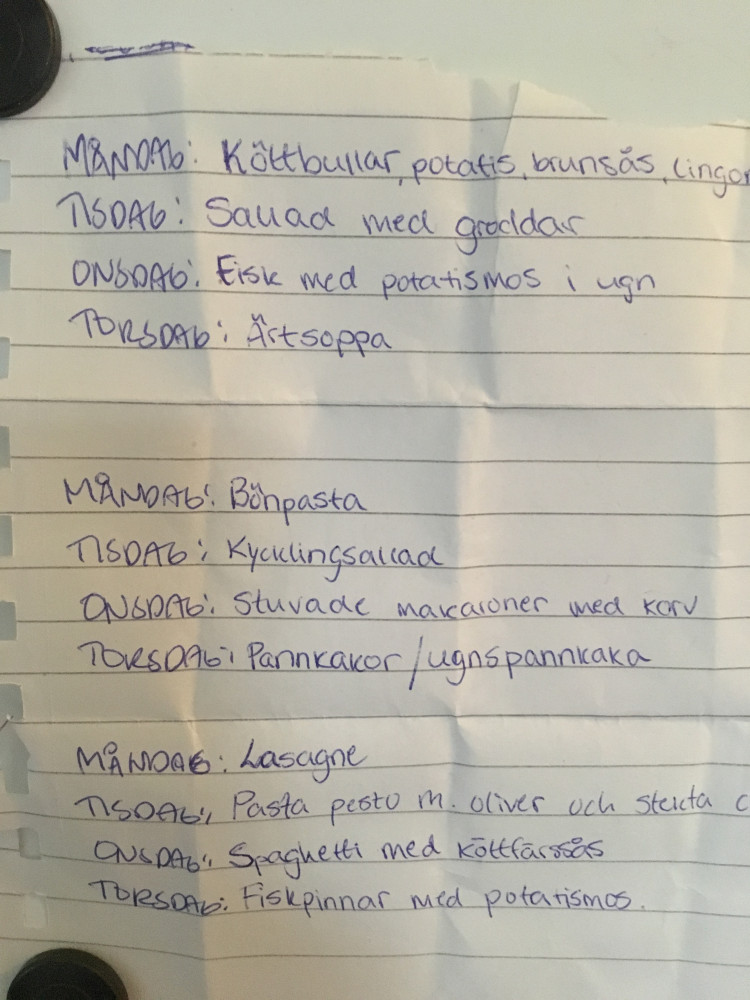 MÅNDAG: Köttbullar, potatis, brunsås, lingon
TISDAG: Sallad med groddar
ONSDAG: Fisk med potatismos i ugn
TORSDAG: Ärtsoppa
MÅNDAG: Bönpasta
TISDAG: Kycklingsallad
ONSDAG: Stuvade makaroner med korv
TORSDAG: Pannkakor/ugnspannkaka
MÅNDAG: Lasagne
TISDAG: Pasta pesto m. oliver och stekta
ONSDAG: Spaghetti med köttfärssås
TORSDAG: Fiskpinnar med potatismos.